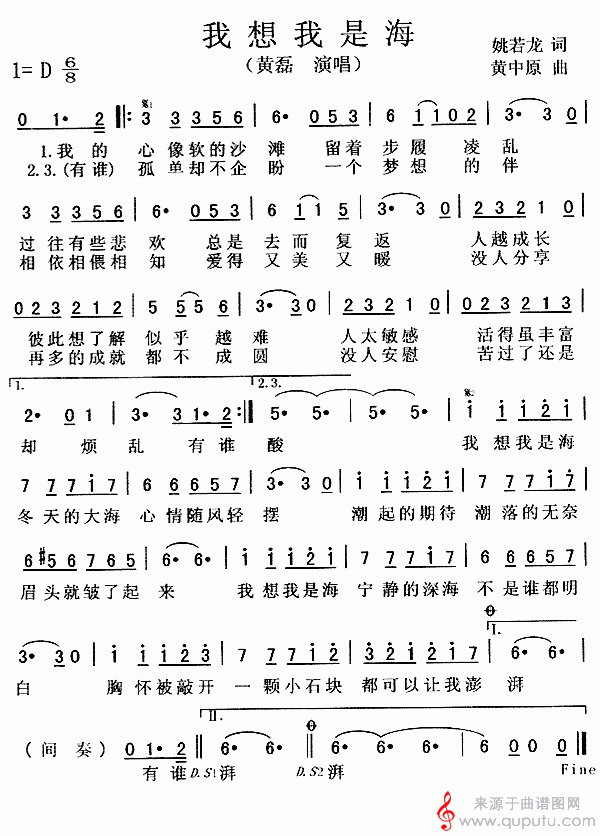 我想我是海
1=D 6/8
（黄磊 演唱）
姚若龙 词
黄中原 曲
0 1· 2 3 3 3 5 6 6· 0 5 3 3 5 6 6 1 1 0 2 3· 3 0
1.我的 心像软的沙滩 留着步履凌乱
2.3.(有谁) 孤单却不企盼 一个梦想的伴
3 3 3 5 6 6· 0 5 3 3 5 6 6 1 1 5 0 2 3 2 1 0
过往有些悲欢 总是去而复返 人越成长
相依相偎相知 爱得又美又暖 没人分享
0 2 3 2 1 2 5 5 5 6 3· 3 0 0 2 3 2 1 0 0 2 3 2 1 2
彼此想了解似乎越难 人太敏感 活得虽丰富
再多的成就都不成圆 没人安慰 苦过了还是
1. 2.3.
2· 0 1 3· 3 3 1 2 5· 5· 5· 5· 1 1 1 2 1
却烦乱 有谁酸 我想我是海
7 7 7 1 7 6 6 6 5 6 3· 3 0 1 1 1 2 1 7 7 7 1 7
冬天的大海心情随风轻摆 潮起的期待潮落的无奈
6 #5 6 7 6 5 6· 6· 1 1 1 2 1 7 7 7 1 7 6 6 6 5 6
眉头就皱了起来 我想我是海宁静的深海不是谁都明
I.
3· 3 0 1 1 1 2 3 2 1 1 1 2 1 7 7 7 1 7 6· 6·
白 胸怀被敲开一颗小石块都可以让我澎湃
II.
（间奏） 0 1· 2 6· 6· 6· 6· 6 0 0 0
有谁 D.S1 湃 D.S2 湃 Fine
来源于曲谱图网
www.quputu.com